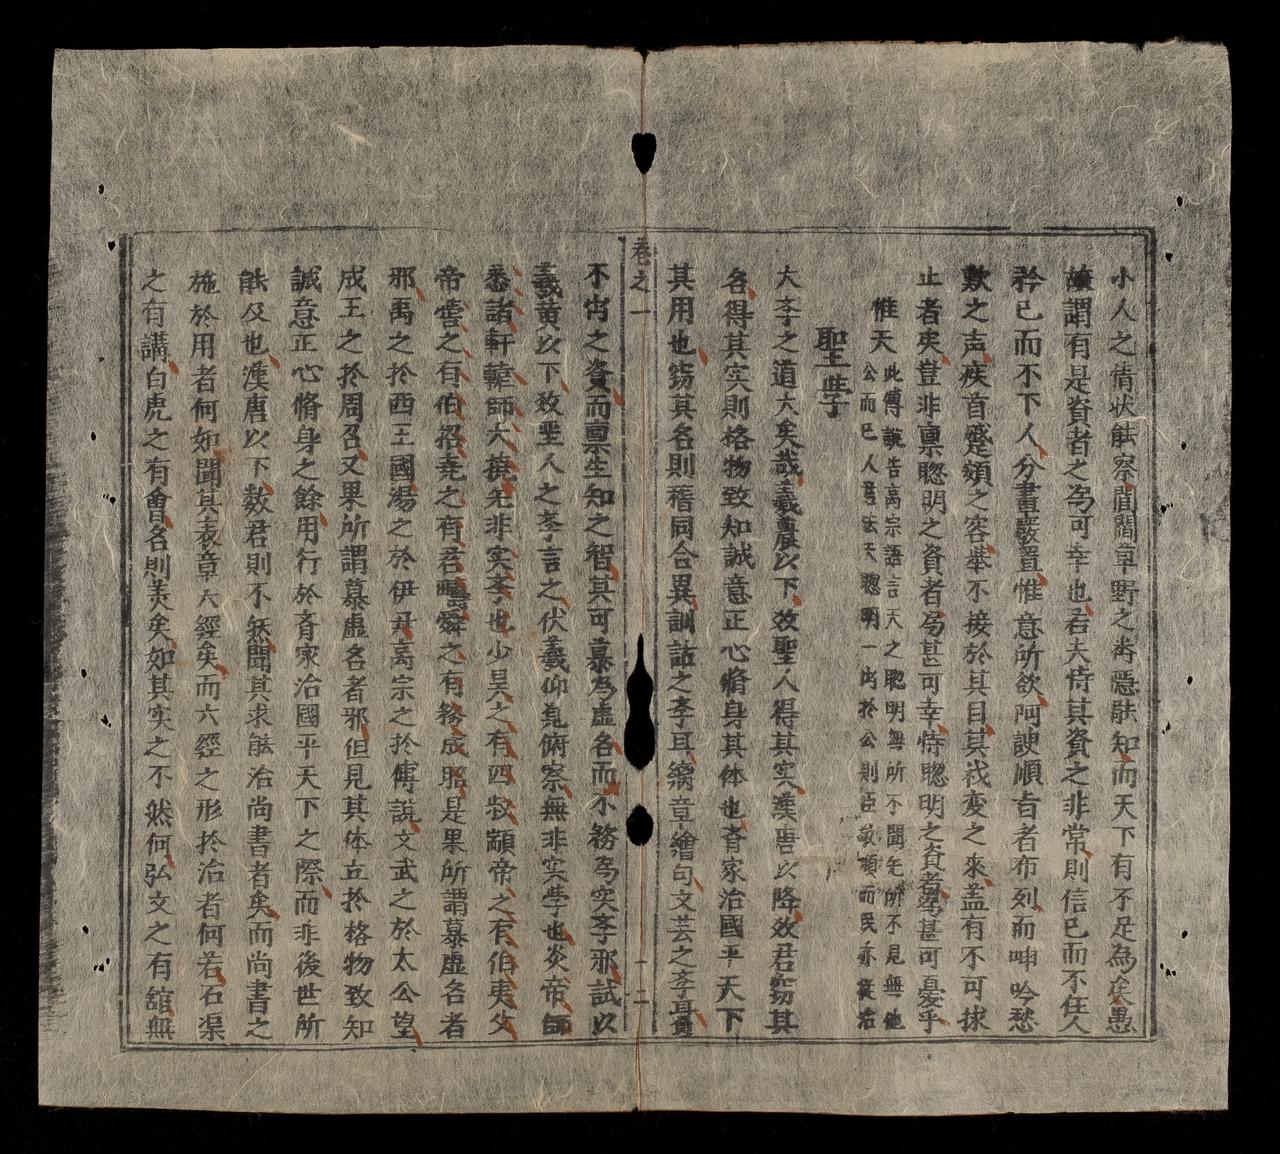 小人之情状䏻察閭閻草野之幽隱䏻知而天下有不足為矣愚
故謂有是資者之为可幸也若夫恃其資之非常則信己而不任人
矜己而不下人分晝嚴置惟意所欲阿諛順㫖者布列而呻吟愁
歎之声疾首蹙頞之容举不接於其目其祸变之來盖有不可捄
止者矣豈非禀聦明之資者为甚可幸恃聦明之資者为甚可憂乎
惟天此傳說告高宗語言天之聦明無所不聞無所不見無他
公而已人君法天聦明一出於公則臣敬順而民亦從治
聖斈
大斈之道大矣哉羲農以下效聖人得其实漢唐以降效君窃其
名得其实則格物致知誠意正心脩身其体也斉家治國平天下
其用也窃其名則稽同合異訓詁之斈耳繢章繪句文芸之斈耳
卷之一
二
不肖之資而禀生知之智其可慕为虚名而不務为实斈邪試以
羲黄以下效聖人之斈言之伏羲仰观俯察無非实斈也炎帝師
悉諸軒轅師大撓无非实斈也少昊之有四叔顓帝之有伯夷父
帝嚳之有伯招堯之有君疇舜之有務成昭是果所謂慕虚名者
邪禹之於西王國湯之於伊尹高宗之於傅說文武之於太公望
成王之於周召又果所謂慕虚名者邪但見其体立於格物致知
誠意正心脩身之餘用行於斉家治國平天下之際而非後世所
䏻及也漢唐以下数君則不然聞其求䏻治尚書者矣而尚書之
施於用者何如聞其表章六經矣而六經之形於治者何若石渠
之有講白虎之有會名則美矣如其实之不然何弘文之有舘無